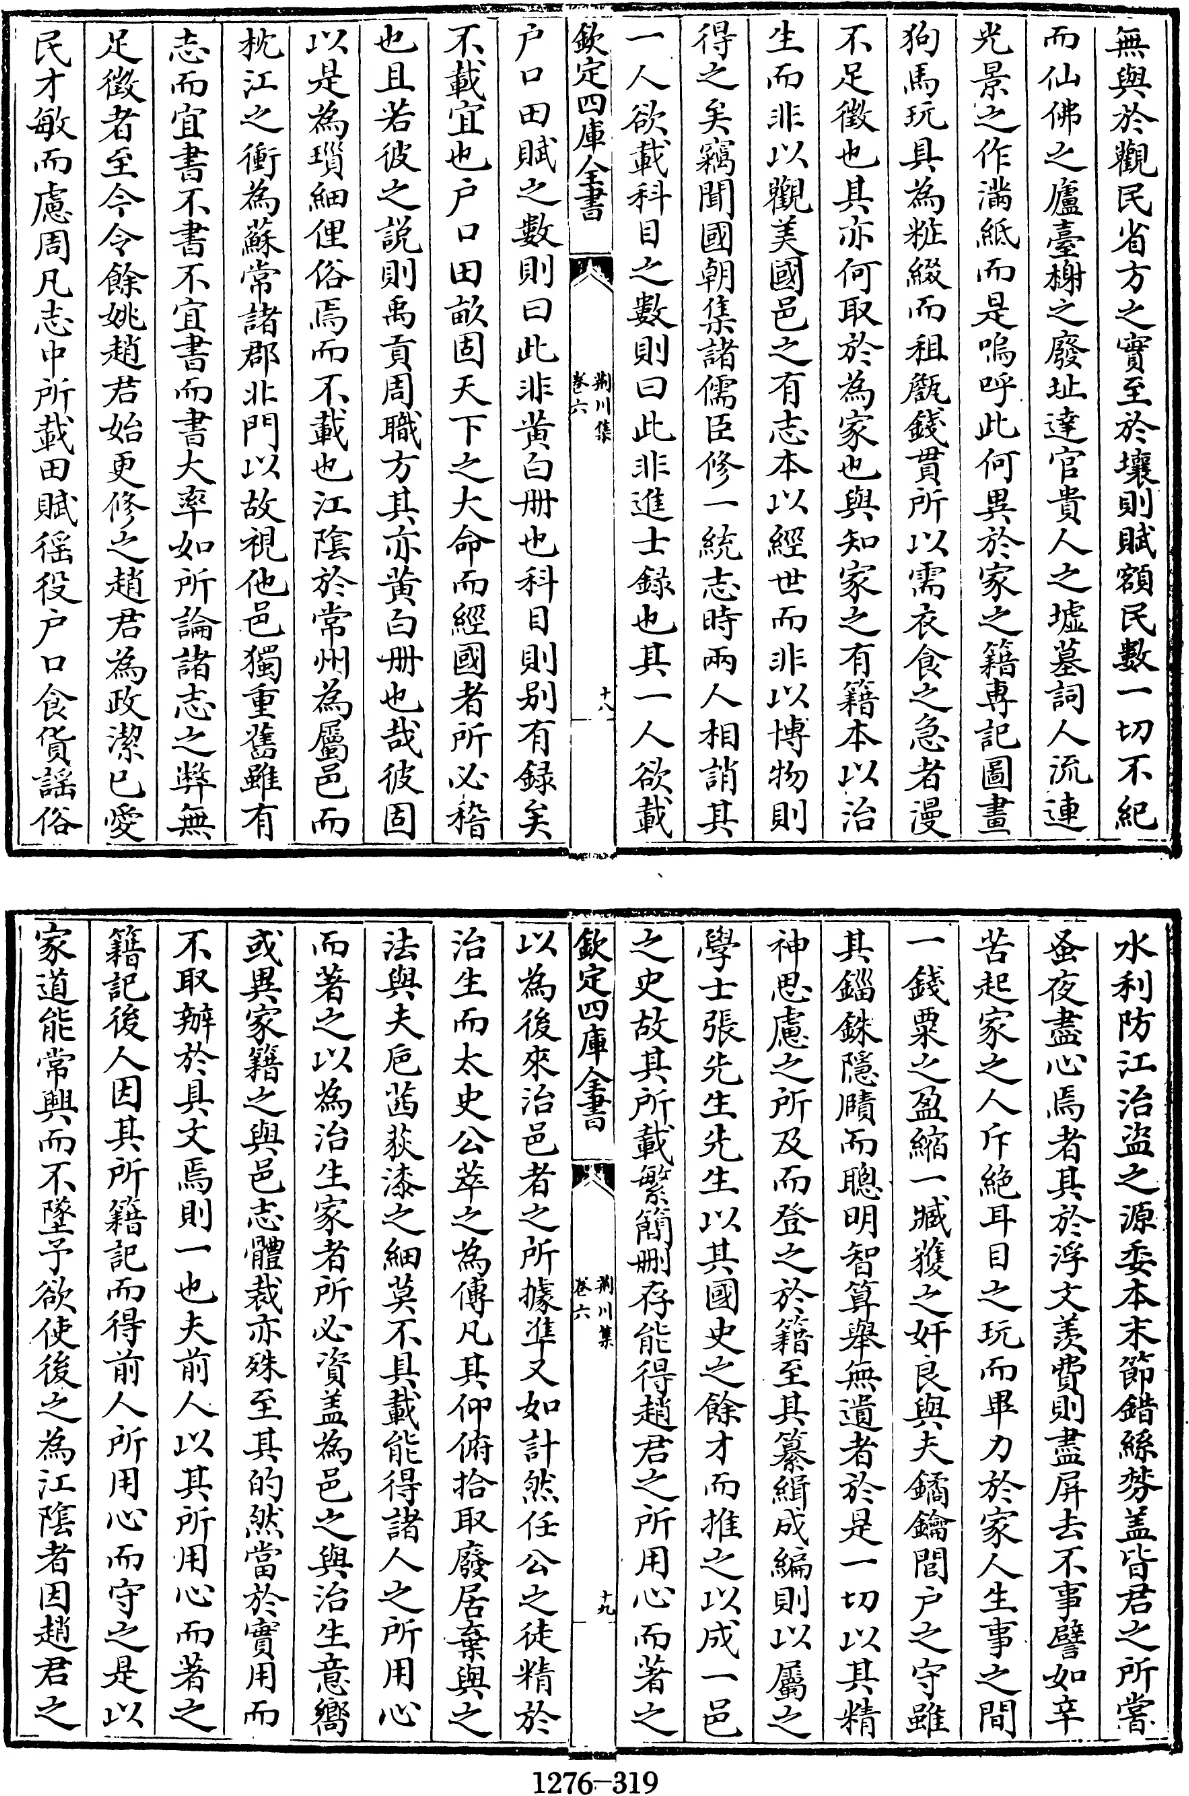 無與於觀民省方之實至於壤則賦額民數一切不紀
而仙佛之廬臺榭之廢址達官貴人之墟墓詞人流連
光景之作滿紙而是嗚呼此何異於家之籍專記圖畫
狗馬玩具為粧綴而租甔錢貫所以需衣食之急者漫
不足徵也其亦何取於為家也與知家之有籍本以治
生而非以觀美國邑之有志本以經世而非以博物則
得之矣竊聞國朝集諸儒臣修一統志時兩人相誚其
一人欲載科目之數則曰此非進士録也其一人欲載
欽定四庫全書
荆川集
卷六
十八
户口田賦之數則曰此非黄白册也科目則别有録矣
不載宜也户口田畝固天下之大命而經國者所必稽
也且若彼之説則禹貢周職方其亦黄白册也哉彼固
以是為瑣細俚俗焉而不載也江陰於常州為屬邑而
枕江之衝為蘇常諸郡北門以故視他邑獨重舊雖有
志而宜書不書不宜書而書大率如所論諸志之弊無
足徵者至今令餘姚趙君始更修之趙君為政潔已愛
民才敏而慮周凡志中所載田賦徭役户口食貨謡俗
水利防江治盗之源委本末節錯絲棼盖皆君之所嘗
蚤夜盡心焉者其於浮文羡費則盡屏去不事譬如辛
苦起家之人斥絶耳目之玩而畢力於家人生事之間
一錢粟之盈縮一臧獲之奸良與夫鐍鑰閭户之守雖
其錙銖隱賾而聰明智算舉無遺者於是一切以其精
神思慮之所及而登之於籍至其纂緝成編則以屬之
學士張先生先生以其國史之餘才而推之以成一邑
之史故其所載繁簡刪存能得趙君之所用心而著之
欽定四庫全書
荆川集
卷六
十九
以為後來治邑者之所據凖又如計然任公之徒精於
治生而太史公萃之為傳凡其仰俯拾取廢居棄與之
法與夫巵茜荻漆之細莫不具載能得諸人之所用心
而著之以為治生家者所必資盖為邑之與治生意嚮
或異家籍之與邑志體裁亦殊至其的然當於實用而
不取辦於具文焉則一也夫前人以其所用心而著之
籍記後人因其所籍記而得前人所用心而守之是以
家道能常興而不墜予欲使後之為江陰者因趙君之
1276-319